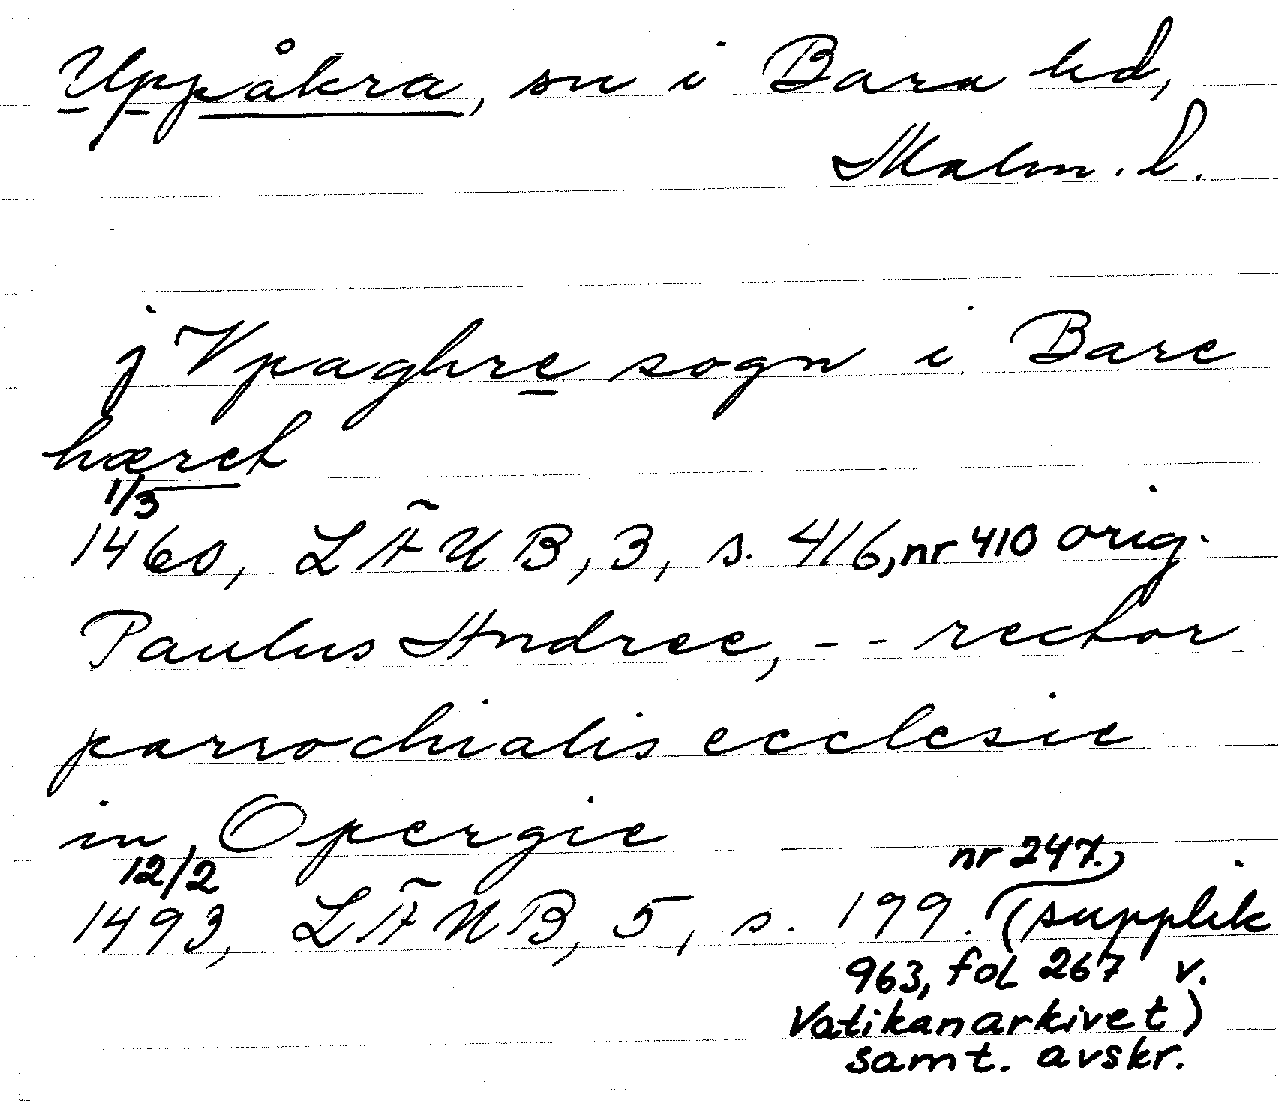 Uppåkra, sn i Bara hd,
Malm. l.
j Vpaghre sogn i Bare
hæret
1/3
1460, LÄUB, 3, s. 416, nr 410 orig.
Paulus Andree, -- rector
parrochialis ecclesie
in Opergie
12/2 nr 247.
1493, LÄUB, 5, s. 199. (supplik
963, fol 267 v.
Vatikanarkivet)
samt. avskr.